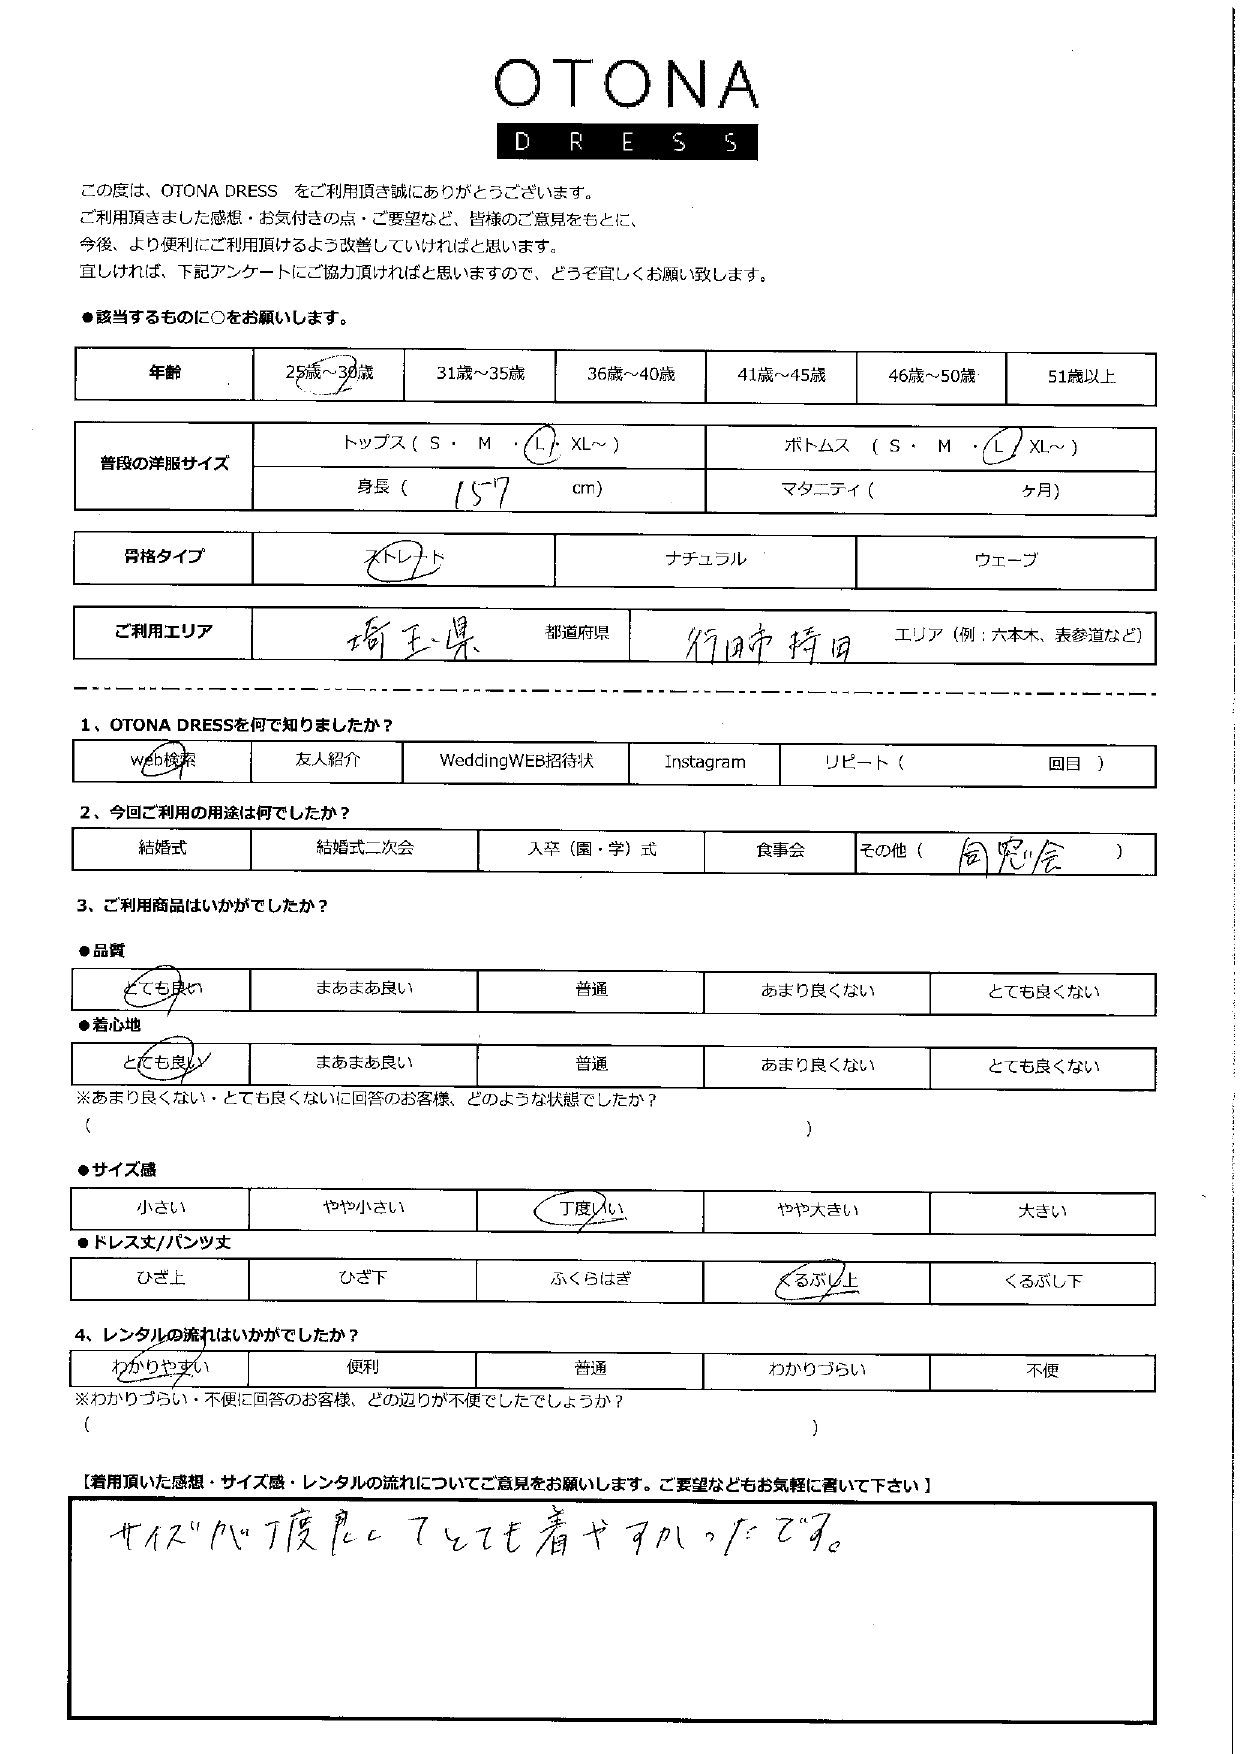 OTONA
DRESS
この度は、OTONA DRESS　をご利用頂き誠にありがとうございます。
ご利用頂きました感想・お気付きの点・ご要望など、皆様のご意見をもとに、
今後、より便利にご利用頂けるよう改善していければと思います。
宜しければ、下記アンケートにご協力頂ければと思いますので、どうぞ宜しくお願い致します。
●該当するものに○をお願いします。
年齢 25歳～30歳 31歳～35歳 36歳～40歳 41歳～45歳 46歳～50歳 51歳以上
普段の洋服サイズ トップス ( S ・ M ・ L ・ XL～ ) ボトムス ( S ・ M ・ L XL～ )
身長 ( 157 cm) マタニティ ( ヶ月)
骨格タイプ ストレート ナチュラル ウェーブ
ご利用エリア 埼玉県 都道府県 行田市 持田 エリア（例：六本木、表参道など）
1、OTONA DRESSを何で知りましたか？
web検索 友人紹介 WeddingWEB招待状 Instagram リピート（ 回目 ）
2、今回ご利用の用途は何でしたか？
結婚式 結婚式二次会 入卒（園・学）式 食事会 その他（ 同窓会 ）
3、ご利用商品はいかがでしたか？
●品質
とても良い まあまあ良い 普通 あまり良くない とても良くない
●着心地
とても良い まあまあ良い 普通 あまり良くない とても良くない
※あまり良くない・とても良くないに回答のお客様、どのような状態でしたか？
( )
●サイズ感
小さい やや小さい 丁度いい やや大きい 大きい
●ドレス丈/パンツ丈
ひざ上 ひざ下 ふくらはぎ くるぶし上 くるぶし下
4、レンタルの流れはいかがでしたか？
わかりやすい 便利 普通 わかりづらい 不便
※わかりづらい・不便に回答のお客様、どの辺りが不便でしたでしょうか？
( )
【着用頂いた感想・サイズ感・レンタルの流れについてご意見をお願いします。ご要望などもお気軽に書いて下さい】
サイズが丁度良くてとても着やすかったです。